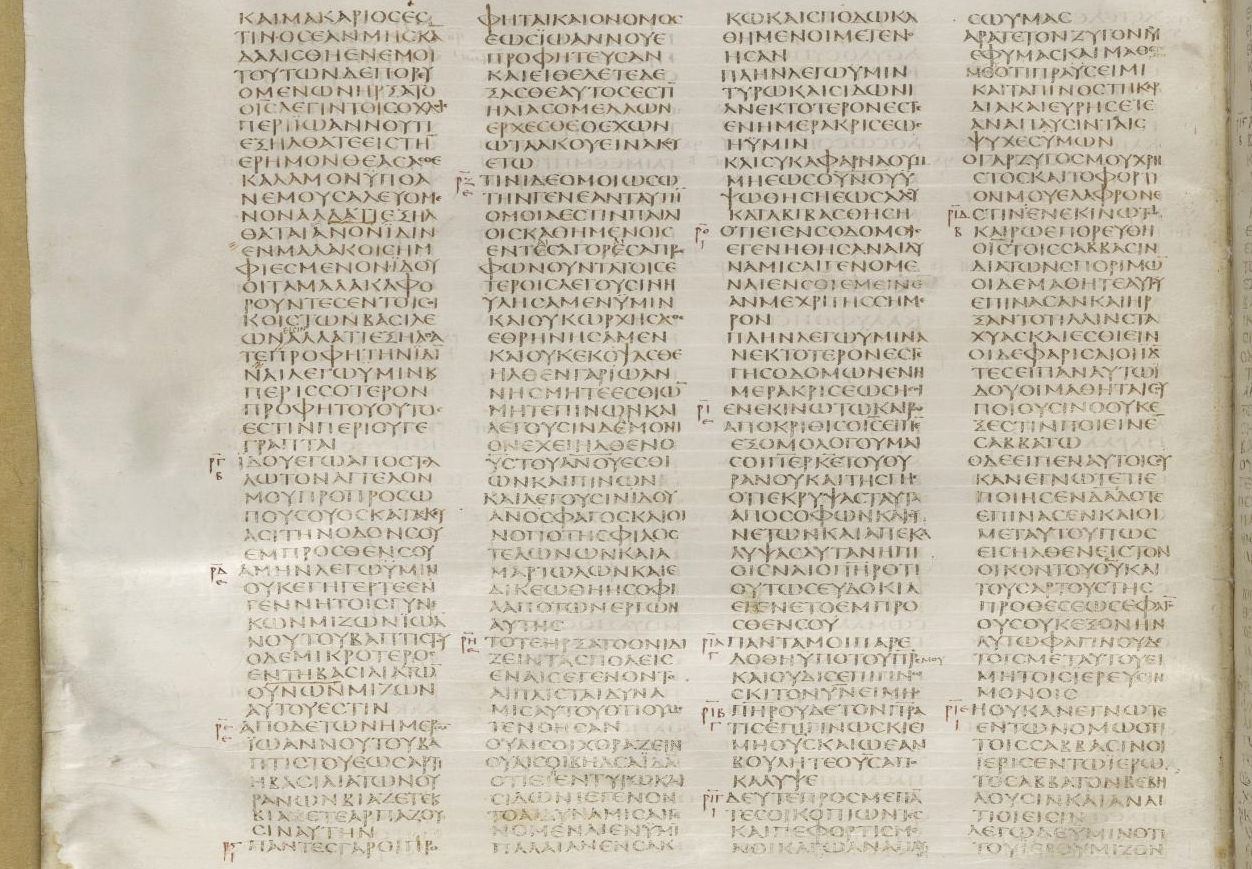 ΚΑΙΜΑΚΑΡΙΟϹΕϹ
ΤΙΝΟϹΕΑΝΜΗϹΚΑ
ΔΑΛΙϹΘΗΕΝΕΜΟΙ
ΤΟΥΤΩΝΔΕΠΟΡΥ
ΟΜΕΝΩΝΗΡΞΑΤΟ
ΟΙϹΛΕΓΙΝΤΟΙϹΟΧΛΟΙϹ
ΠΕΡΙΪΩΑΝΝΟΥΤΙ
ΕΞΗΛΘΑΤΕΕΙϹΤΗ
ΕΡΗΜΟΝΘΕΑϹΑϹΘΕ
ΚΑΛΑΜΟΝΫΠΟΑ
ΝΕΜΟΥϹΑΛΕΥΟΜΕ
ΝΟΝΑΛΛΑΤΙΕΞΗΛ
ΘΑΤΑΙΑΝΟΝΙΔΙΝ
ΕΝΜΑΛΑΚΟΙϹΗΜ
ΦΙΕϹΜΕΝΟΝΪΔΟΥ
ΟΙΤΑΜΑΛΑΚΑΦΟ
ΡΟΥΝΤΕϹΕΝΤΟΙϹΟΙ
ΚΟΙϹΤΩΝΒΑϹΙΛΕ
ΩΝΑΛΛΑΤΙΕΞΗΛΘΑ
ΤΕΠΡΟΦΗΤΗΝΪΔΙ
ΝΑΙΛΕΓΩΥΜΙΝΚ
ΠΕΡΙϹϹΟΤΕΡΟΝ
ΠΡΟΦΗΤΟΥΟΥΤΟϹ
ΕϹΤΙΝΠΕΡΙΟΥΓΕ
ΓΡΑΠΤΑΙ
ΪΔΟΥΕΓΩΑΠΟϹΤΕΛ
ΛΩΤΟΝΑΓΓΕΛΟΝ
ΜΟΥΠΡΟΠΡΟϹΩ
ΠΟΥϹΟΥΟϹΚΑΤΑϹΚΕΥ
ΑϹΙΤΗΝΟΔΟΝϹΟΥ
ΕΜΠΡΟϹΘΕΝϹΟΥ
ΑΜΗΝΛΕΓΩΥΜΙΝ
ΟΥΚΕΓΗΓΕΡΤΕΕΝ
ΓΕΝΝΗΤΟΙϹΓΥΝΑΙ
ΚΩΝΜΙΖΩΝΙΩΑ
ΝΟΥΤΟΥΒΑΠΤΙϹΤΟΥ
ΟΔΕΜΙΚΡΟΤΕΡΟϹ
ΕΝΤΗΒΑϹΙΛΙΑΤΩ
ΟΥΝΩΝΜΙΖΩΝ
ΑΥΤΟΥΕϹΤΙΝ
ΑΠΟΔΕΤΩΝΗΜΕΡΩ
ΪΩΑΝΝΟΥΤΟΥΒΑ
ΠΤΙϹΤΟΥΕΩϹΑΡΤΙ
ΗΒΑϹΙΛΙΑΤΩΝΟΥ
ΡΑΝΩΝΒΙΑΖΕΤΕΚ
ΒΙΑϹΤΕΑΡΠΑΖΟΥ
ϹΙΝΑΥΤΗΝ
ΠΑΝΤΕϹΓΑΡΟΙΠΡΟ
ΦΗΤΑΙΚΑΙΟΝΟΜΟϹ
ΕΩϹΪΩΑΝΝΟΥΕ
ΠΡΟΦΗΤΕΥϹΑΝ
ΚΑΙΕΙΘΕΛΕΤΕΔΕ
ΞΑϹΘΕΑΥΤΟϹΕϹΤΙ
ΗΛΙΑϹΟΜΕΛΛΩΝ
ΕΡΧΕϹΘΕΟΕΧΩΝ
ΩΤΑΑΚΟΥΕΙΝΑΚΟΥ
ΕΤΩ
ΤΙΝΙΔΕΟΜΟΙΩϹΩ
ΤΗΝΓΕΝΕΑΝΤΑΥΤΗ
ΟΜΟΙΑΕϹΤΙΝΠΑΙΔΙ
ΟΙϹΚΑΘΗΜΕΝΟΙϹ
ΕΝΤΕϹΑΓΟΡΕϹΑΠΡΟϹ
ΦΩΝΟΥΝΤΑΤΟΙϹΕ
ΤΕΡΟΙϹΛΕΓΟΥϹΙΝΗ
ΥΛΗϹΑΜΕΝΥΜΙΝ
ΚΑΙΟΥΚΩΡΧΗϹΑϹΘΕ
ΕΘΡΗΝΗϹΑΜΕΝ
ΚΑΙΟΥΚΕΚΟΨΑϹΘΕ
ΗΛΘΕΝΓΑΡΪΩΑΝ
ΝΗϹΜΗΤΕΕϹΘΙΩ
ΜΗΤΕΠΙΝΩΝΚΑΙ
ΛΕΓΟΥϹΙΝΔΕΜΟΝΙ
ΟΝΕΧΕΙΗΛΘΕΝΟ
ΥϹΤΟΥΑΝΟΥΕϹΘΙ
ΩΝΚΑΙΠΙΝΩΝ
ΚΑΙΛΕΓΟΥϹΙΝΪΔΟΥ
ΑΝΟϹΦΑΓΟϹΚΑΙΟΙ
ΝΟΠΟΤΗϹΦΙΛΟϹ
ΤΕΛΩΝΩΝΚΑΙΑ
ΜΑΡΤΩΛΩΝΚΑΙΕ
ΔΙΚΕΩΘΗΗϹΟΦΙ
ΑΑΠΟΤΩΝΕΡΓΩΝ
ΑΥΤΗϹ
ΤΟΤΕΗΡΞΑΤΟΟΝΙΔΙ
ΖΕΙΝΤΑϹΠΟΛΕΙϹ
ΕΝΑΙϹΕΓΕΝΟΝΤΟ
ΑΙΠΛΙϹΤΑΙΔΥΝΑ
ΜΙϹΑΥΤΟΥΟΤΙΟΥΜΕ
ΤΕΝΟΗϹΑΝ
ΟΥΑΙϹΟΙΧΟΡΑΖΕΙΝ
ΟΥΑΙϹΟΙΒΗΔϹΑΪΔΑ
ΟΤΙΕΙΕΝΤΥΡΩΚΑΙ
ϹΙΔΩΝΙΕΓΕΝΟΝ
ΤΟΑΙΔΥΝΑΜΙϹΑΙΓΕ
ΝΟΜΕΝΑΙΕΝΥΜΙ
ΠΑΛΑΙΑΝΕΝϹΑΚ
ΚΩΚΑΙϹΠΟΔΩΚΑ
ΘΗΜΕΝΟΙΜΕΤΕΝΟ
ΗϹΑΝ
ΠΛΗΝΛΕΓΩΥΜΙΝ
ΤΥΡΩΚΑΙϹΙΔΩΝΙ
ΑΝΕΚΤΟΤΕΡΟΝΕϹΤΕ
ΕΝΗΜΕΡΑΚΡΙϹΕΩϹ
ΗΫΜΙΝ
ΚΑΙϹΥΚΑΦΑΡΝΑΟΥΜ
ΜΗΕΩϹΟΥΝΟΥΥ
ΨΩΘΗϹΗΕΩϹΑΔΟΥ
ΚΑΤΑΒΙΒΑϹΘΗϹΗ
ΟΤΙΕΙΕΝϹΟΔΟΜΟΙϹ
ΕΓΕΝΗΘΗϹΑΝΑΙΔΥ
ΝΑΜΙϹΑΙΓΕΝΟΜΕ
ΝΑΙΕΝϹΟΙΕΜΕΙΝΕ
ΑΝΜΕΧΡΙΤΗϹϹΗΜΕ
ΡΟΝ
ΠΛΗΝΛΕΓΩΥΜΙΝΑ
ΝΕΚΤΟΤΕΡΟΝΕϹΤΕ
ΓΗϹΟΔΟΜΩΝΕΝΗ
ΜΕΡΑΚΡΙϹΕΩϹΗϹΟΙ
ΕΝΕΚΙΝΩΤΩΚΑΙΡΩ
ΑΠΟΚΡΙΘΙϹΟΙϹΕΙΠΕ
ΕΞΟΜΟΛΟΓΟΥΜΑΙ
ϹΟΙΠΕΡΚΕΤΟΥΟΥ
ΡΑΝΟΥΚΑΙΤΗϹΓΗϹ
ΟΤΙΕΚΡΥΨΑϹΤΑΥΤΑ
ΑΠΟϹΟΦΩΝΚΑΙϹΥ
ΝΕΤΩΝΚΑΙΑΠΕΚΑ
ΛΥΨΑϹΑΥΤΑΝΗΠΙ
ΟΙϹΝΑΙΟΠΗΡΟΤΙ
ΟΥΤΩϹΕΥΔΟΚΙΑ
ΕΓΕΝΕΤΟΕΜΠΡΟ
ϹΘΕΝϹΟΥ
ΠΑΝΤΑΜΟΙΠΑΡΕ
ΔΟΘΗΥΠΟΤΟΥΠΡϹΜΟΥ
ΚΑΙΟΥΔΙϹΕΠΙΓΙΝΩ
ϹΚΙΤΟΝΥΝΕΙΜΗ
ΟΠΗΡΟΥΔΕΤΟΝΠΡΑ
ΤΙϹΕΠΙΓΙΝΩϹΚΙΕΙ
ΜΗΟΥϹΚΑΙΩΕΑΝ
ΒΟΥΛΗΤΕΟΥϹΑΠΟ
ΚΑΛΥΨΕ
ΔΕΥΤΕΠΡΟϹΜΕΠΑ
ΤΕϹΟΙΚΟΠΙΩΝΤΕϹ
ΚΑΙΠΕΦΟΡΤΙϹΜΕ
ΝΟΙΚΑΓΩΑΝΑΠΑΥ
ϹΩΥΜΑϹ
ΑΡΑΤΕΤΟΝΖΥΓΟΝΜΟΥ
ΕΦΥΜΑϹΚΑΙΜΑΘΕ
ΜΟΥΟΤΙΠΡΑΫϹΕΙΜΙ
ΚΑΙΤΑΠΙΝΟϹΤΗΚΑΡ
ΔΙΑΚΑΙΕΥΡΗϹΕΤΕ
ΑΝΑΠΑΥϹΙΝΤΑΙϹ
ΨΥΧΕϹΥΜΩΝ
ΟΓΑΡΖΥΓΟϹΜΟΥΧΡΗ
ϹΤΟϹΚΑΙΤΟΦΟΡΤΙ
ΟΝΜΟΥΕΛΑΦΡΟΝΕ
ϹΤΙΝΕΝΕΚΙΝΩΤΩ
ΚΑΙΡΩΕΠΟΡΕΥΘΗ
ΟΙϹΤΟΙϹϹΑΒΒΑϹΙΝ
ΔΙΑΤΩΝϹΠΟΡΙΜΩ
ΟΙΔΕΜΑΘΗΤΕΑΥΤΟΥ
ΕΠΙΝΑϹΑΝΚΑΙΗΡ
ΞΑΝΤΟΤΙΛΛΙΝϹΤΑ
ΧΥΑϹΚΑΙΕϹΘΙΕΙΝ
ΟΙΔΕΦΑΡΙϹΑΙΟΙΪΔΟ
ΤΕϹΕΙΠΑΝΑΥΤΩΪ
ΔΟΥΟΙΜΑΘΗΤΑΙϹΟΥ
ΠΟΙΟΥϹΙΝΟΟΥΚΕ
ΞΕϹΤΙΝΠΟΙΕΙΝΕ
ϹΑΒΒΑΤΩ
ΟΔΕΕΙΠΕΝΑΥΤΟΙϹΟΥ
ΚΑΝΕΓΝΩΤΕΤΙΕ
ΠΟΙΗϹΕΝΔΑΔΟΤΕ
ΕΠΙΝΑϹΕΝΚΑΙΟΙ
ΜΕΤΑΥΤΟΥΠΩϹ
ΕΙϹΗΛΘΕΝΕΙϹΤΟΝ
ΟΙΚΟΝΤΟΥΘΥΚΑΙ
ΤΟΥϹΑΡΤΟΥϹΤΗϹ
ΠΡΟΘΕϹΕΩϹΕΦΑΓΟ
ΟΥϹΟΥΚΕΞΟΝΗΝ
ΑΥΤΩΦΑΓΙΝΟΥΔΕ
ΤΟΙϹΜΕΤΑΥΤΟΥΕΙ
ΜΗΤΟΙϹΪΕΡΕΥϹΙΝ
ΜΟΝΟΙϹ
ΗΟΥΚΑΝΕΓΝΩΤΕ
ΕΝΤΩΝΟΜΩΟΤΙ
ΤΟΙϹϹΑΒΒΑϹΙΝΟΙ
ΪΕΡΙϹΕΝΤΩΪΕΡΩ
ΤΟϹΑΒΒΑΤΟΝΒΕΒΗ
ΛΟΥϹΙΝΚΑΙΑΝΑΙ
ΤΙΟΙΕΙϹΙΝ
ΛΕΓΩΔΕΥΜΙΝΟΤΙ
ΤΟΥΪΕΡΟΥΜΙΖΟΝ